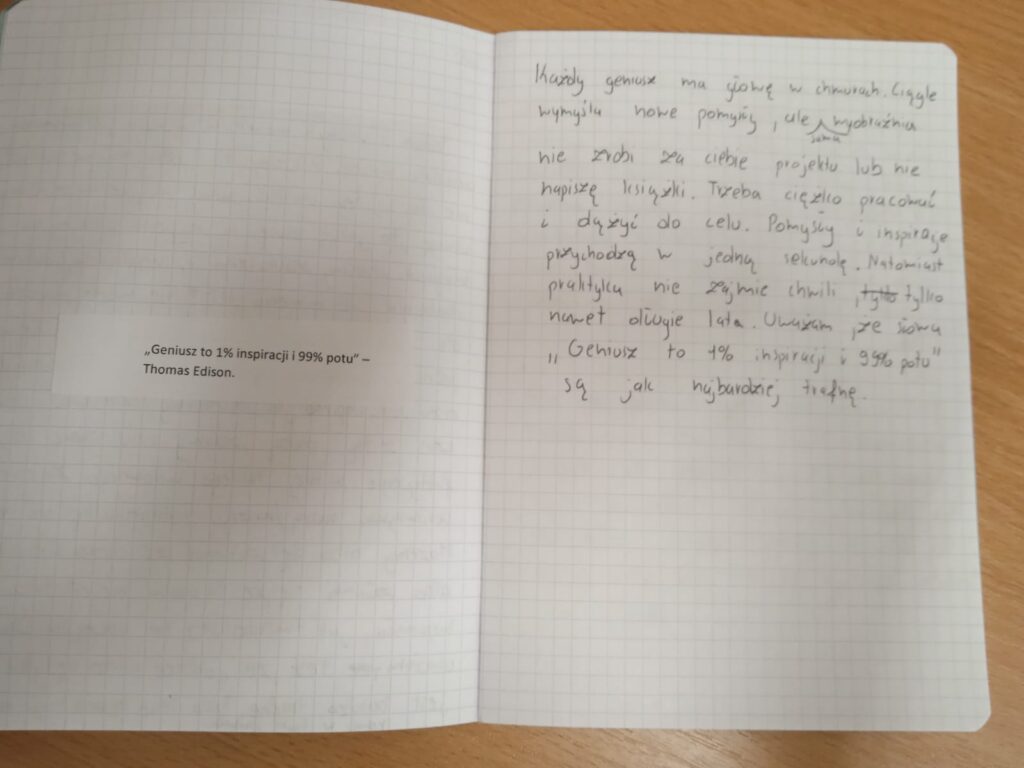 „Geniusz to 1% inspiracji i 99% potu” –
Thomas Edison.
Każdy geniusz ma głowę w chmurach. Ciągle
wymyśla nowe pomysły, ale sama wyobraźnia
nie zrobi za ciebie projektu lub nie
napiszę książki. Trzeba ciężko pracować
i dążyć do celu. Pomysły i inspiracje
przychodzą w jedną sekundę. Natomiast
praktyka nie zajmie chwili, tylko tylko
nawet długie lata. Uważam, że słowa
„Geniusz to 1% inspiracji i 99% potu”
są jak najbardziej trafnę.